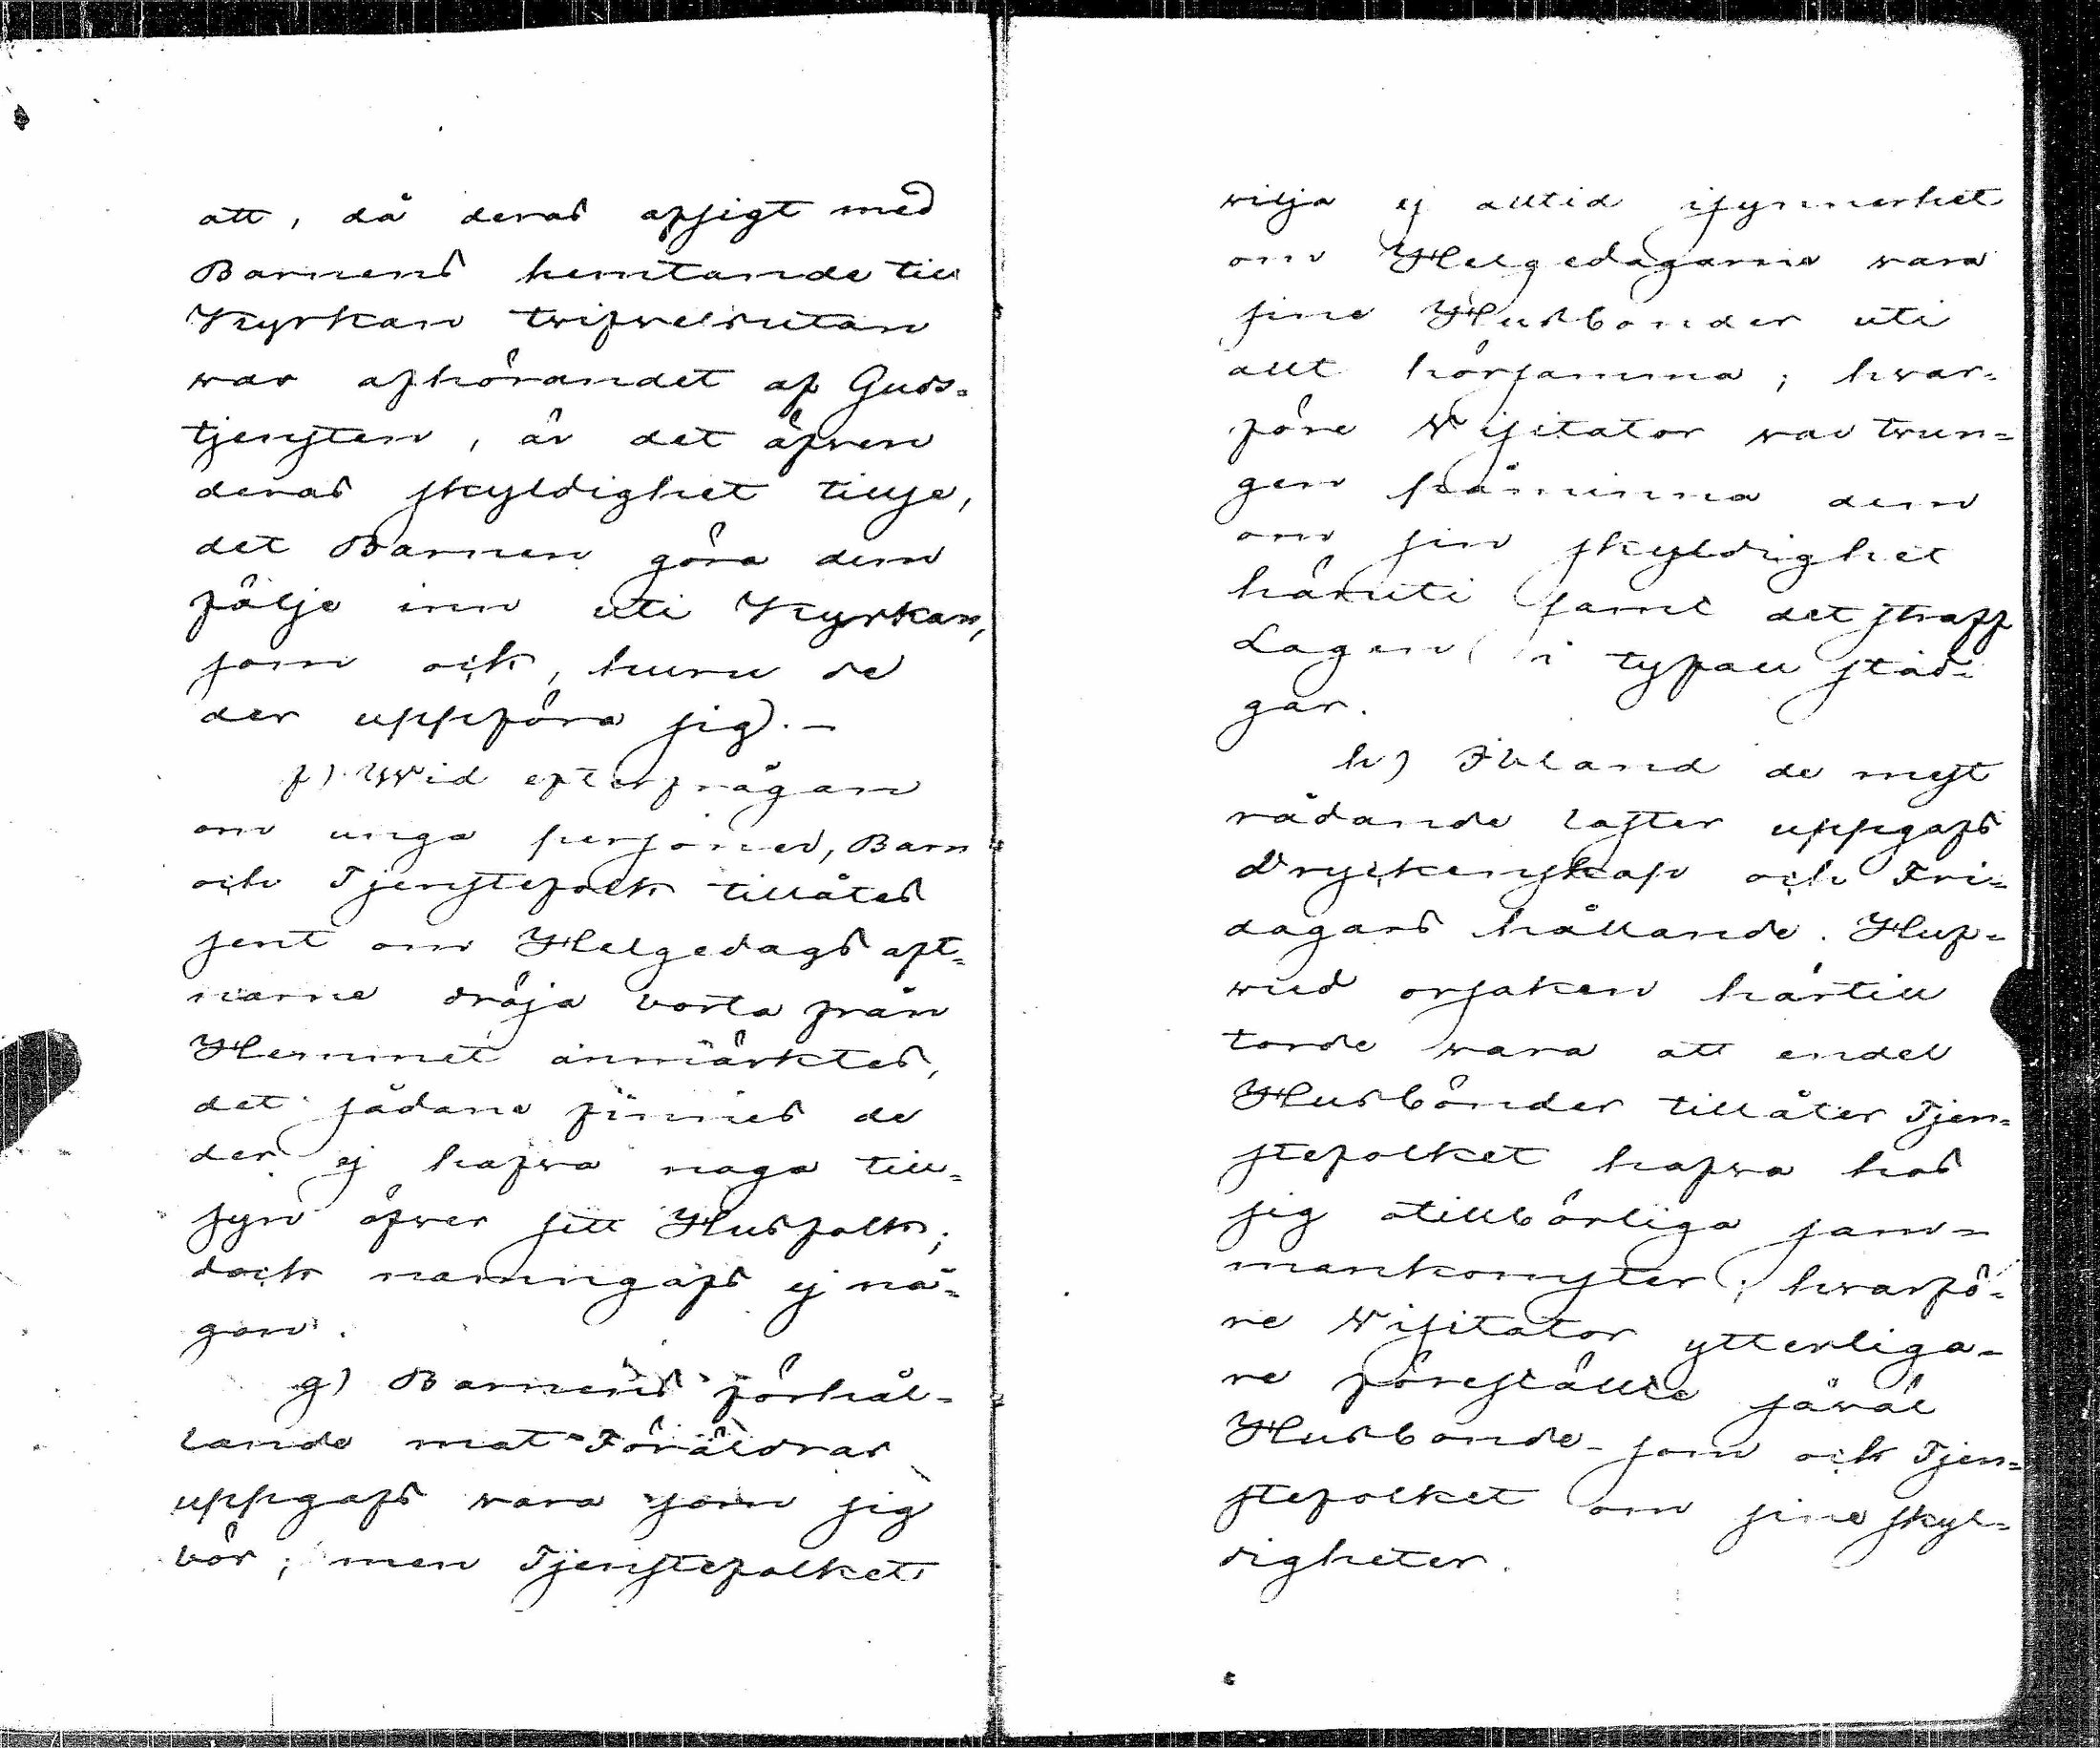 att, då deras afsigt med
Barnens hemtande till
Kyrkan twifwelsutan
war afhörandet af Guds-
tjensten, är det äfwen
deras skyldighet tillse,
det Barnen göra dem
följe inn uti Kyrkan,
som ock, huru de
der uppföra sig).-
f) Wid efterfrågan
om unga personer, Barn
och Tjenstefolk tillåtes
sent om Helgedags aft-
narne dröja borta från
Hemmet anmärktes,
det sådane finnes de
der ej hafwa noga till-
syn öfwer sitt Husfolk;
dock namngafs ej nå-
gon.
g) Barnens förhål-
lande mot Föräldrar
uppgafs wara som sig
bör; men Tjenstefolket
wilja ej alltid isynnerhet
om Helgedagarne wara
sine Husbonder uti
allt hörsamma; hwar-
före Wisitator war twun-
gen påminna dem
om sin skyldighet
häruti samt det straff
Lagen i ty fall stad-
gar.
h) Ibland de mest
rådande laster uppgafs
Dryckenskap och Fri-
dagars hållande. Huf-
wud orsaken härtill
torde wara att endel
Husbönder tillåter Tjen-
stefolket hafwa hos
sig otillbörliga sam-
mankomster; hwarfö-
re Wisitator ytterliga-
re förestälte såwäl
Husbonde- som ock Tjen-
stefolket om sine skyl-
digheter.